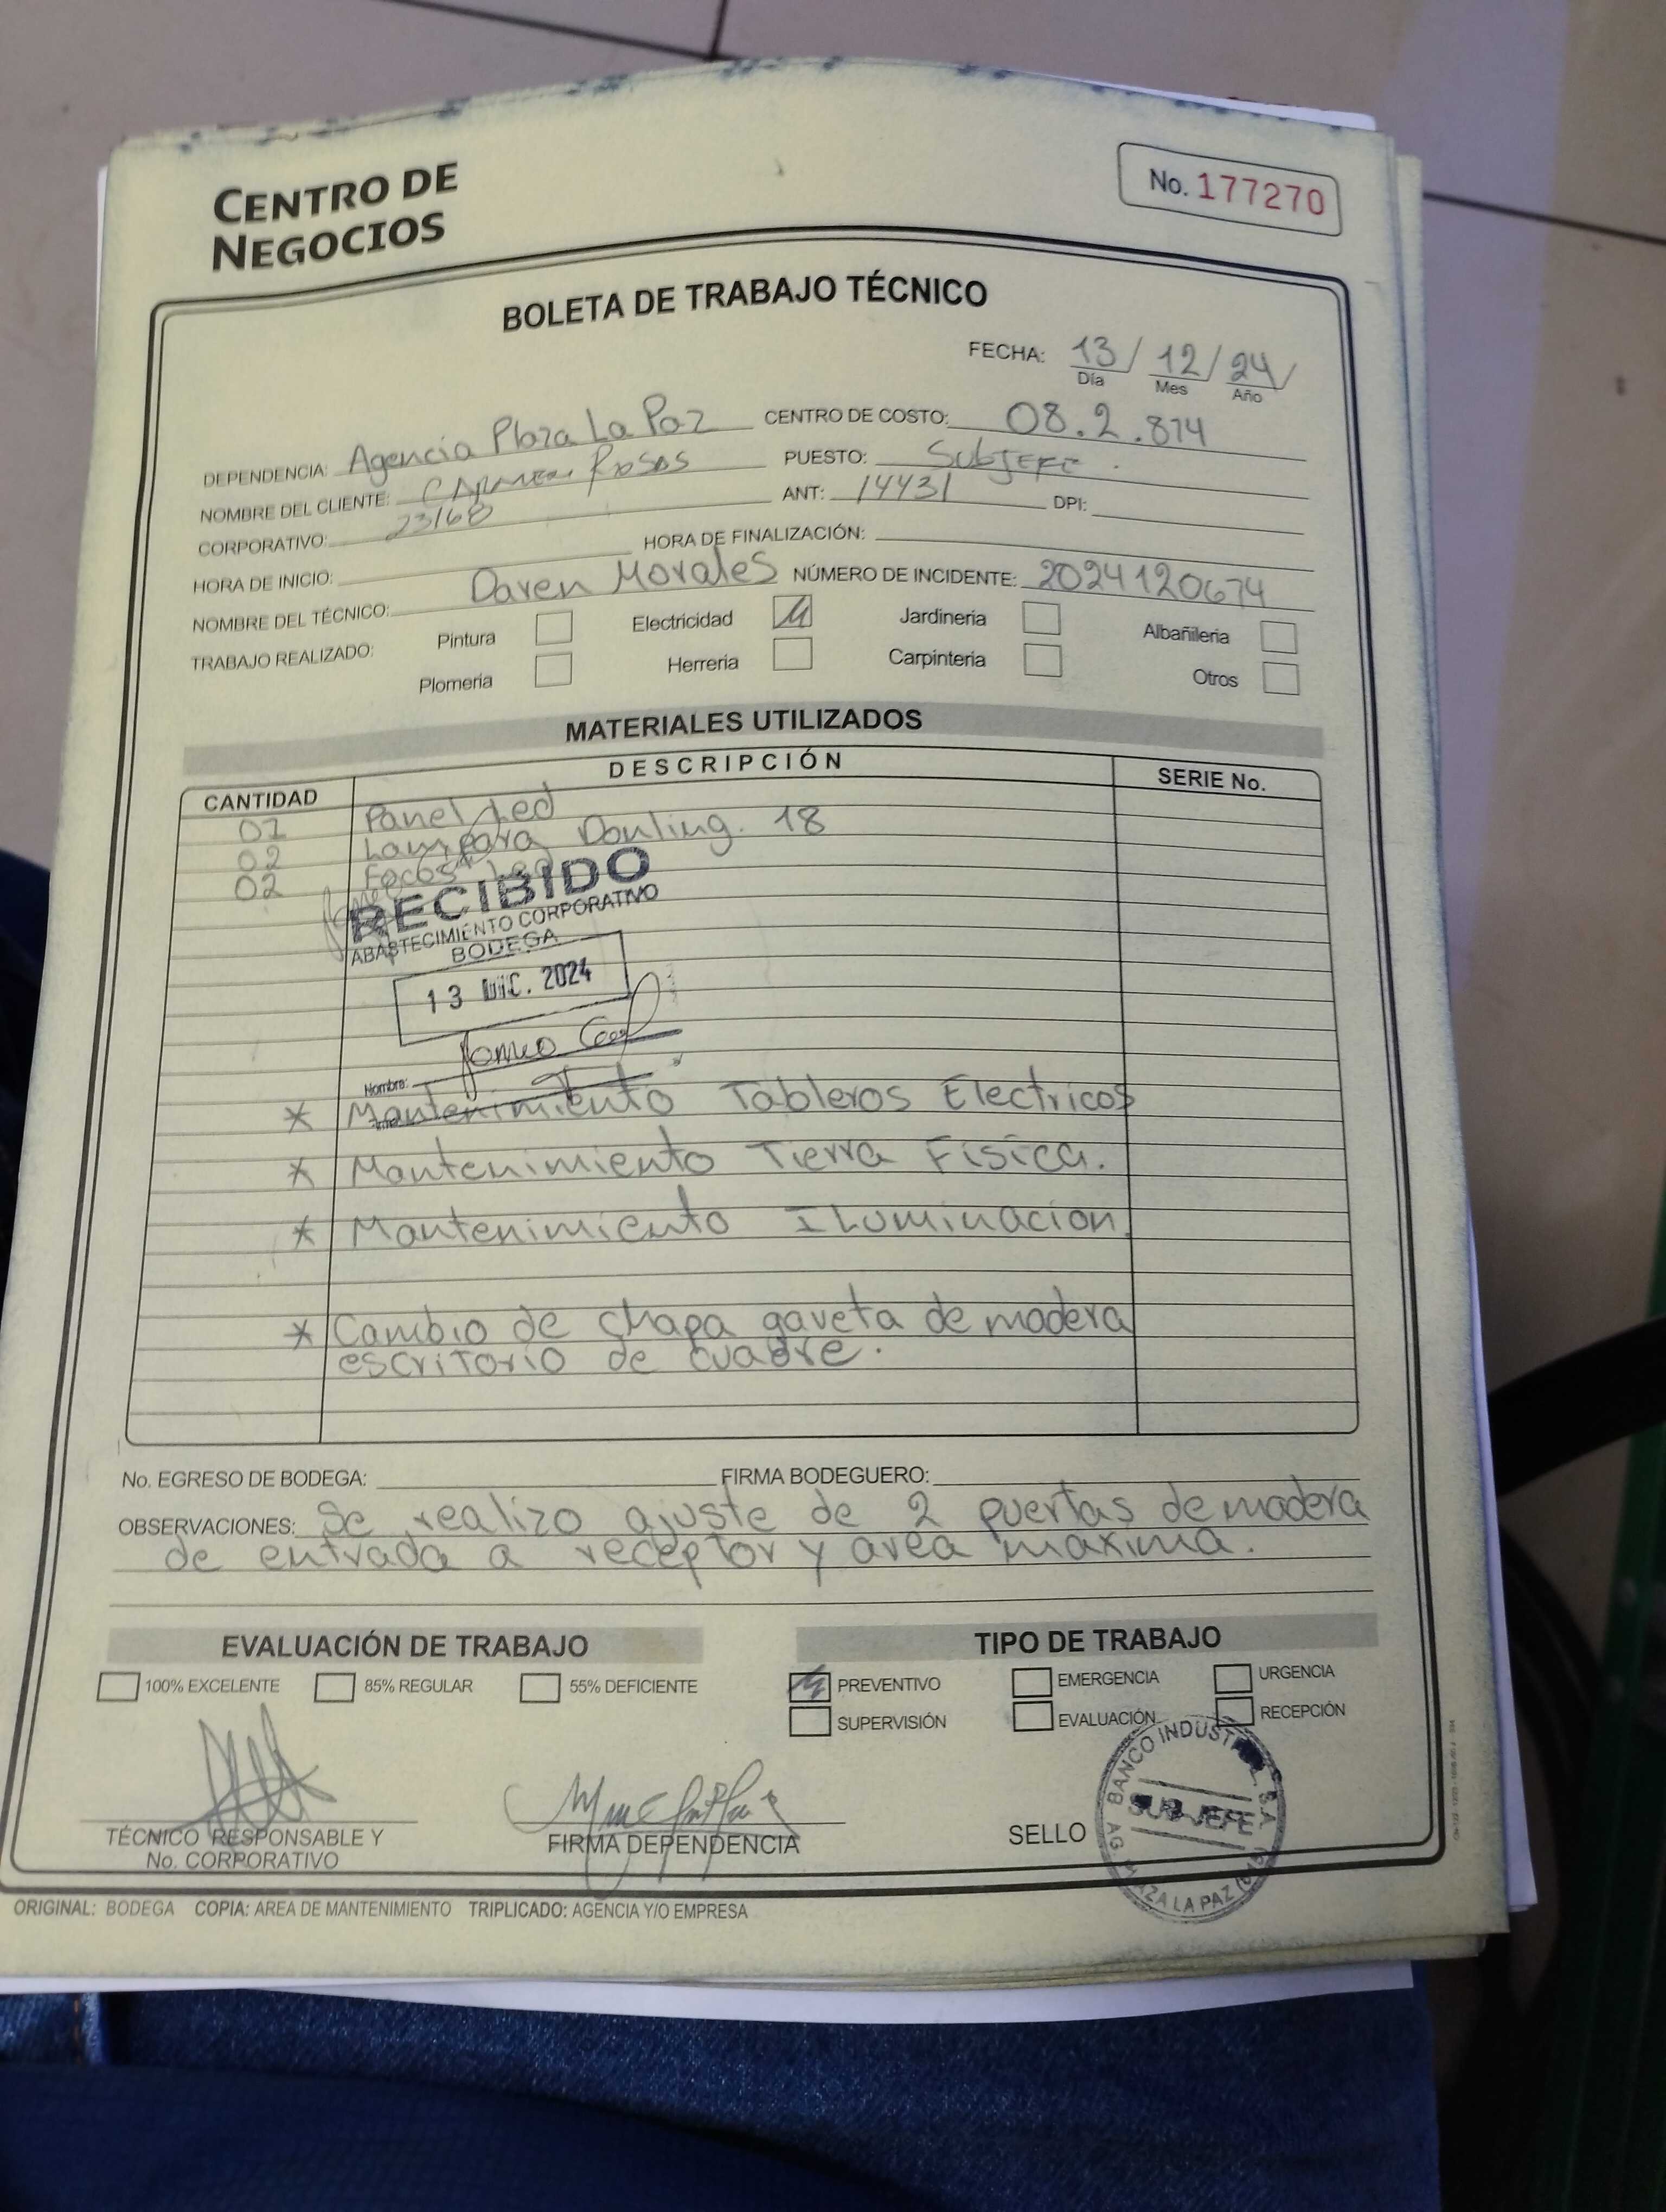 CENTRO DE
NEGOCIOS
No. 177270
BOLETA DE TRABAJO TÉCNICO
FECHA: 13 / 12 / 24 /
Día Mes Año
DEPENDENCIA: Agencia Plaza La Paz CENTRO DE COSTO: 08.2.874
NOMBRE DEL CLIENTE: Rosas PUESTO: SubJEFE.
CORPORATIVO: 23168 ANT: 14431 DPI:
HORA DE INICIO: HORA DE FINALIZACIÓN:
NOMBRE DEL TÉCNICO: Daven Morales NÚMERO DE INCIDENTE: 2024120674
TRABAJO REALIZADO: Pintura Electricidad Jardineria Albañileria
Plomería Herrería Carpinteria Otros
MATERIALES UTILIZADOS
CANTIDAD DESCRIPCIÓN SERIE No.
01 Panel Led
02 Lampara Douling. 18
02 Focos Led
RECIBIDO
ABASTECIMIENTO CORPORATIVO
BODEGA
13 DIC. 2024
Nombre:
* Mantenimiento Tableros Electricos
* Mantenimiento Tierra Fisica.
* Mantenimiento ILuminacion.
* Cambio de chapa gaveta de madera
escritorio de cuadre.
No. EGRESO DE BODEGA: FIRMA BODEGUERO:
OBSERVACIONES: Se realizo ajuste de 2 puertas de madera
de entrada a receptor y area maxima.
EVALUACIÓN DE TRABAJO TIPO DE TRABAJO
100% EXCELENTE 85% REGULAR 55% DEFICIENTE PREVENTIVO EMERGENCIA URGENCIA
SUPERVISIÓN EVALUACIÓN RECEPCIÓN
TÉCNICO RESPONSABLE Y
No. CORPORATIVO
FIRMA DEPENDENCIA
SELLO
BANCO INDUSTRIAL, S.A.
SUB-JEFE
AG. PLAZA LA PAZ
ORIGINAL: BODEGA COPIA: AREA DE MANTENIMIENTO TRIPLICADO: AGENCIA Y/O EMPRESA